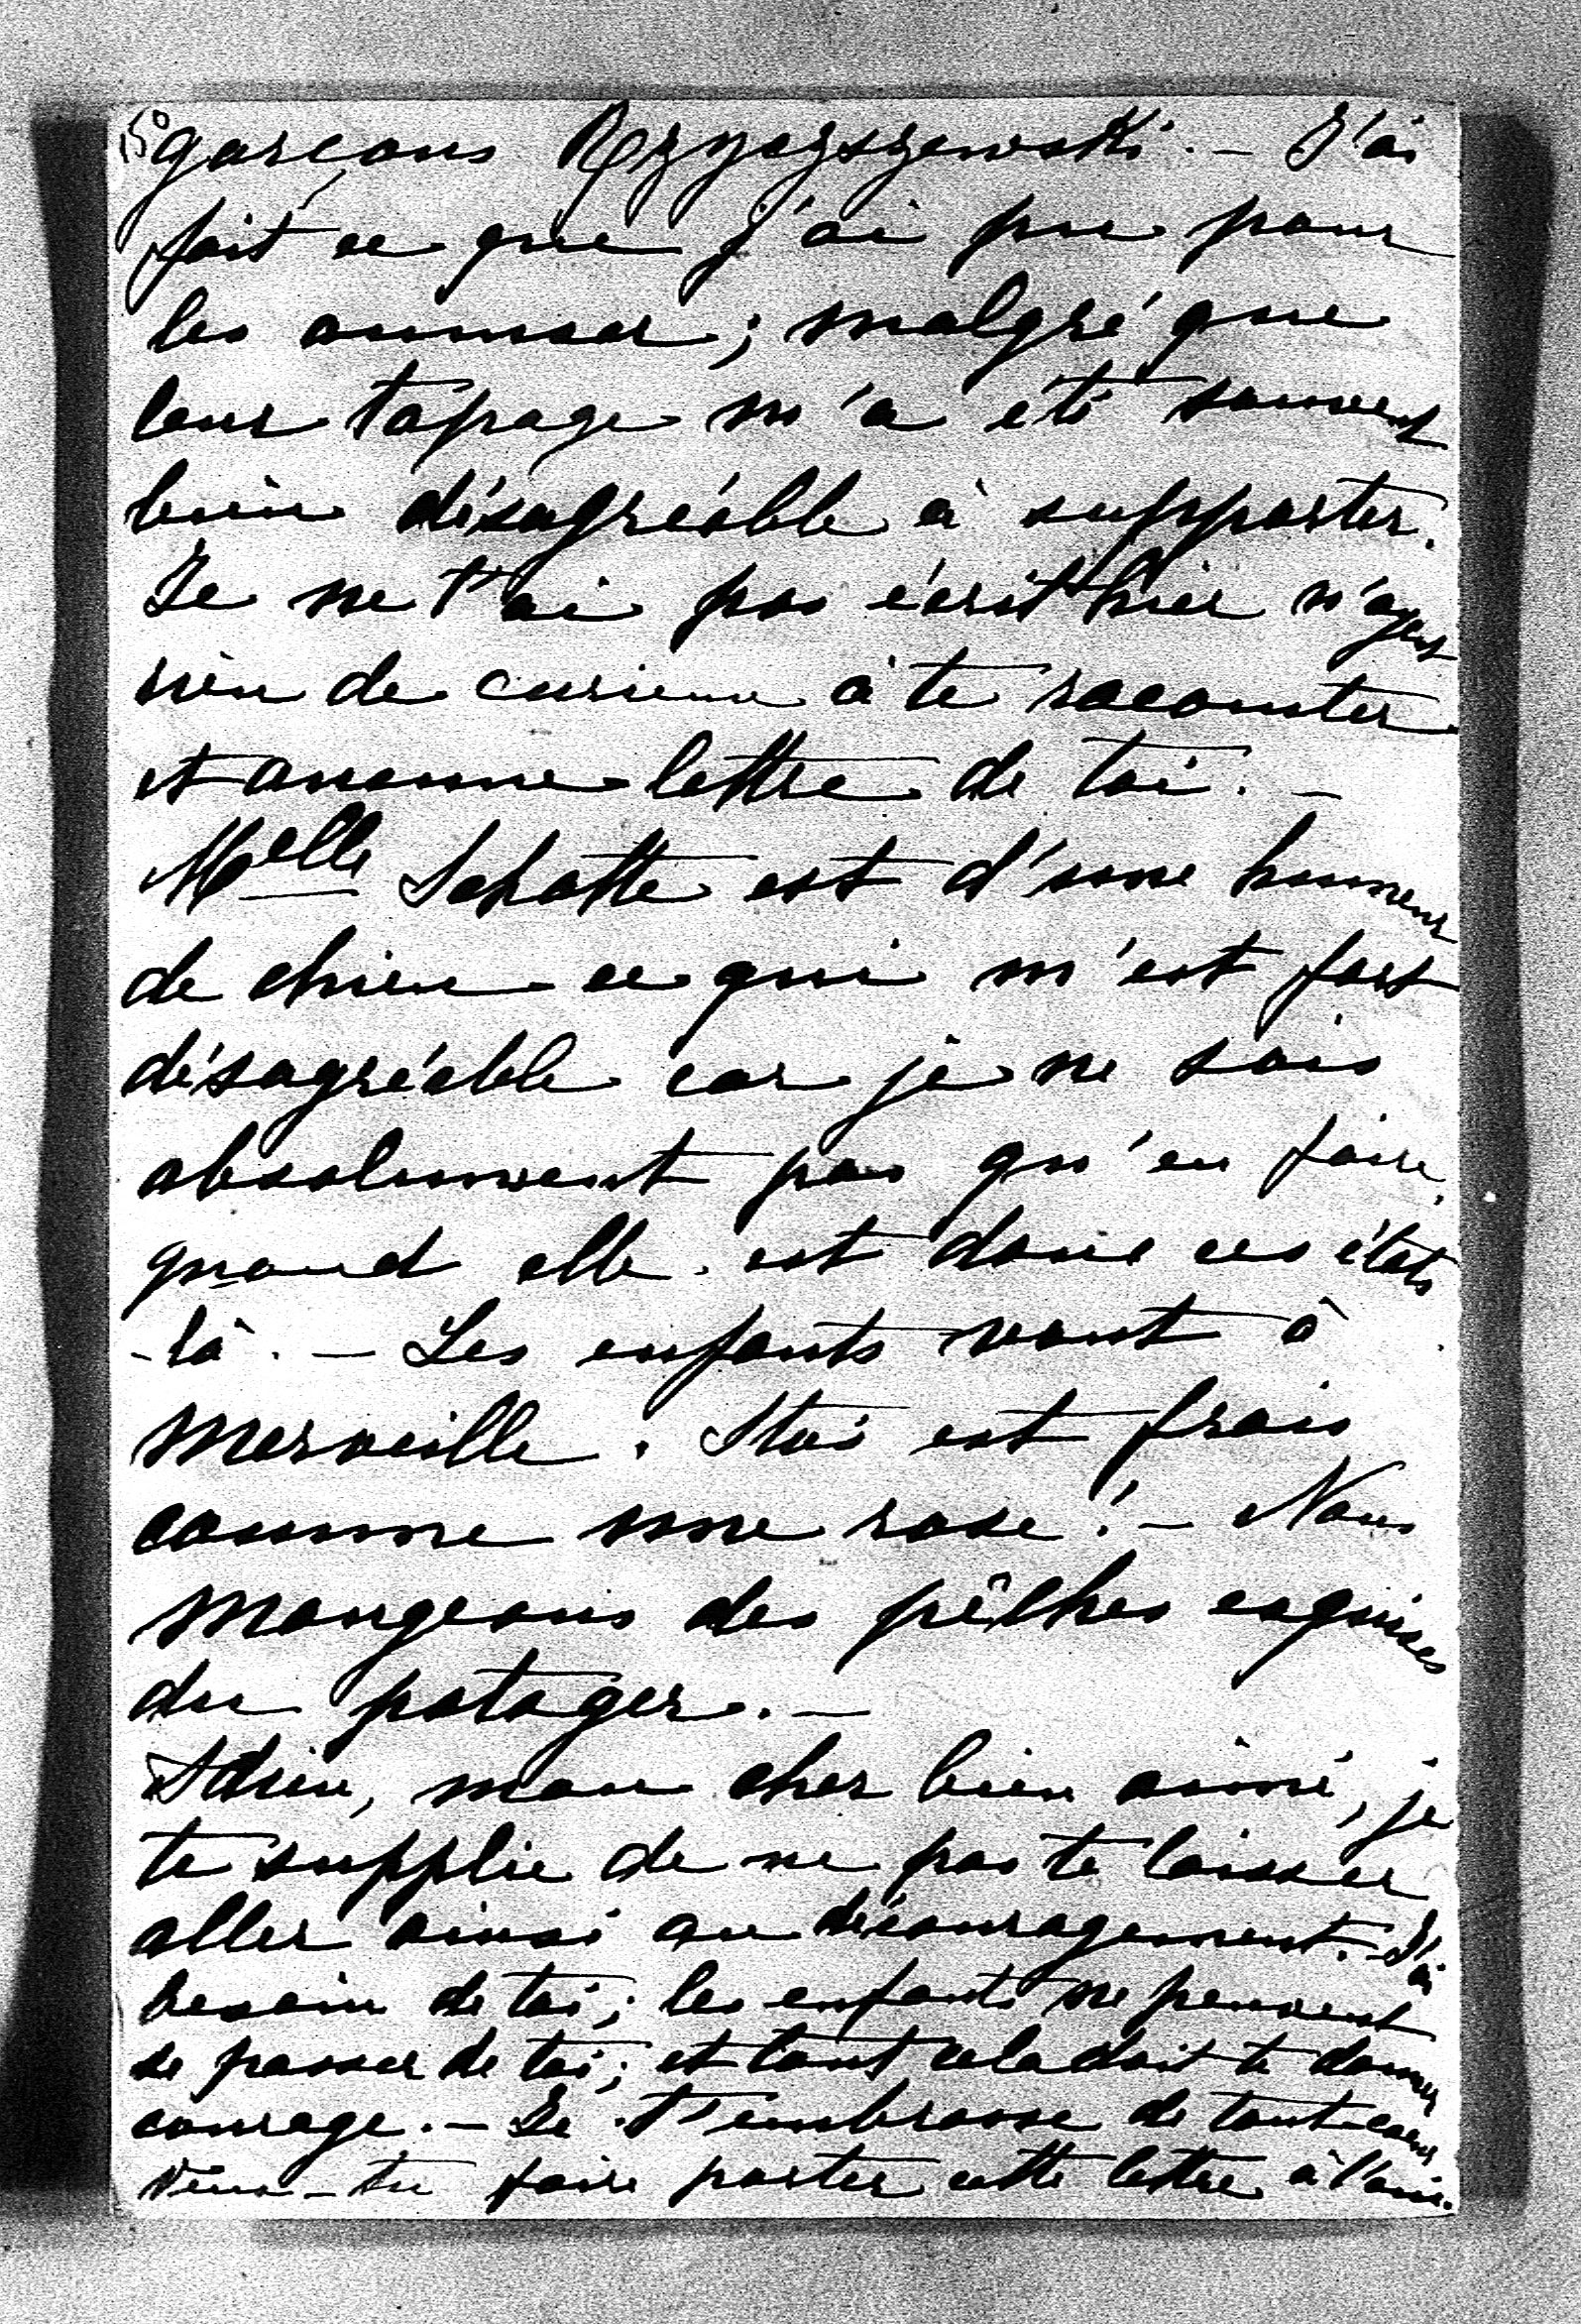 150
garçons Rzyszczewski. — J'ai
fait ce que j'ai pu pour
les amuser; malgré que
leur tapage m'a été souvent
bien désagréable à supporter.
Je ne t'ai pas écrit hier n'ayant
rien de curieux à te raconter
et aucune lettre de toi. —
Melle Schotte est d'une humeur
de chien ce qui m'est fort
désagréable car je ne sais
absolument pas qu'en faire,
quand elle est dans ces états
-là. — Les enfants vont à
merveille. Stas est frais
comme une rose! — Nous
mangeons des pêches exquises
du potager. —
Adieu, mon cher bien aimé, je
te supplie de ne pas te laisser
aller ainsi au découragement. J'ai
besoin de toi; les enfants ne peuvent
se passer de toi; et tout cela doit te donner
courage. — Je t'embrasse de tout cœur
Veux-tu faire porter cette lettre à l'amie.